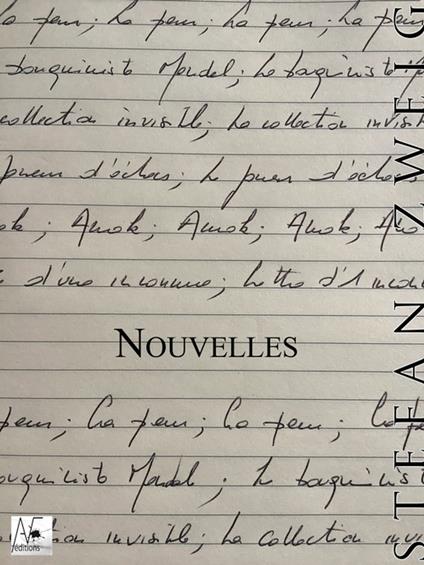 La peur; La peur; La peur; La peur
bouquiniste Mendel; Le bouquiniste
collection invisible; La collection invisi
joueur d'échecs; Le joueur d'échecs;
ok; Amok; Amok; Amok; Amo
d'une inconnue; Lettre d'1 incon
NOUVELLES
peur; La peur; La peur; La pe
bouquiniste Mendel; Le bouquinist
tion invisible; La collection invi
STEFAN ZWEIG
AF
éditions